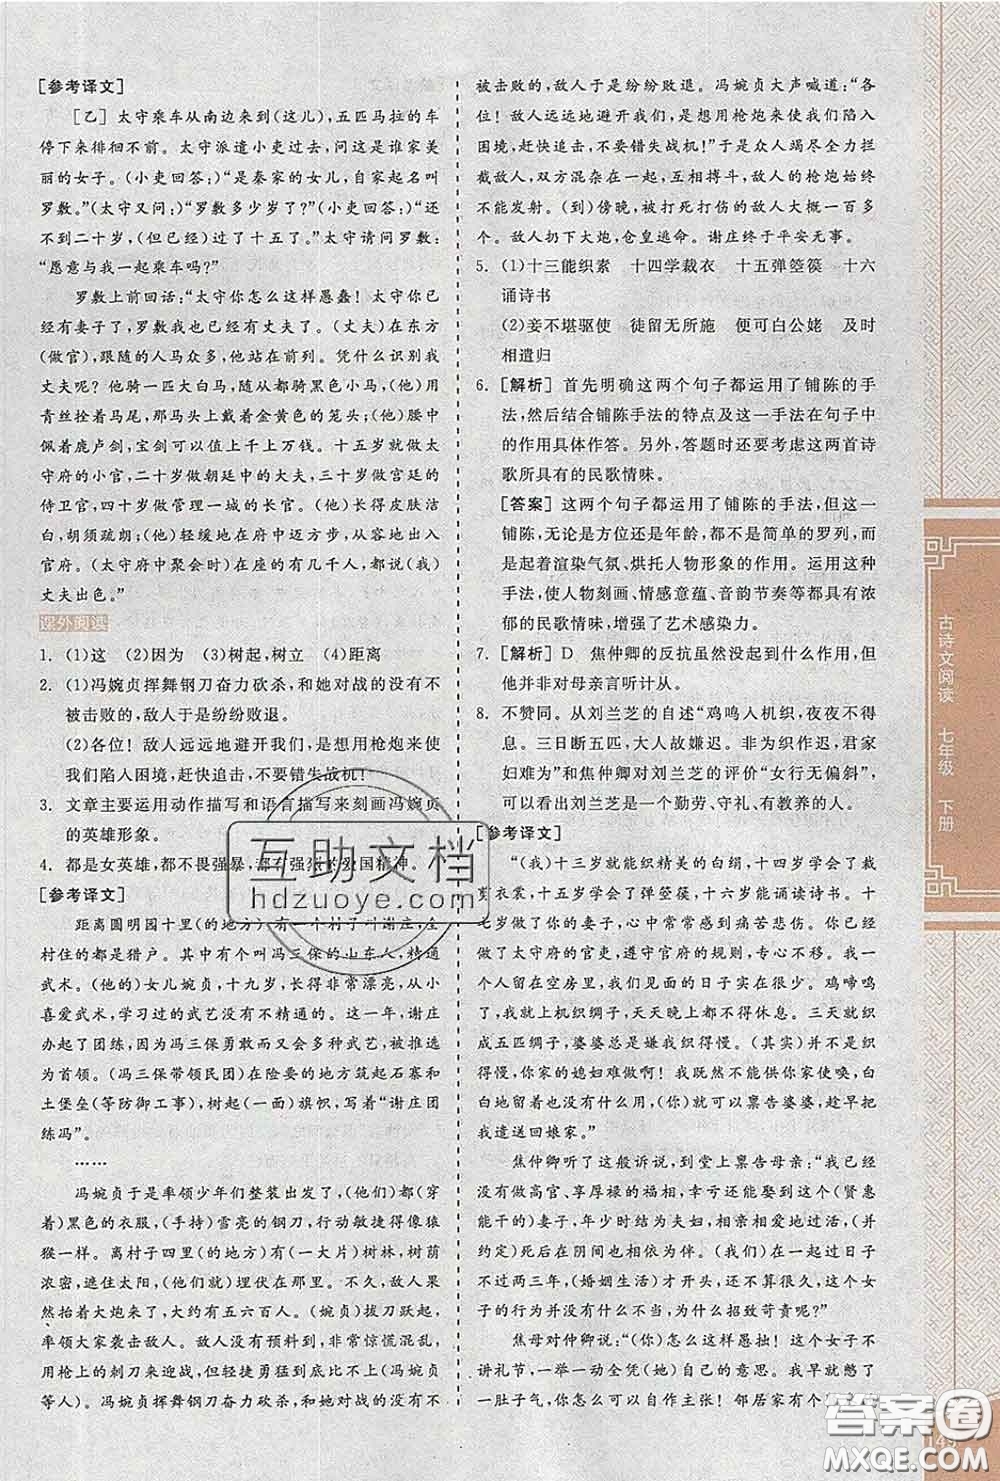 [参考译文]
[乙]太守乘车从南边来到(这儿),五匹马拉的车
停下来徘徊不前。太守派遣小吏过去,问这是谁家美
丽的女子。(小吏回答:)“是秦家的女儿,自家起名叫
罗敷。”(太守又问:)“罗敷多少岁了?”(小吏回答:)“还
不到二十岁,(但已经)过了十五了。”太守请问罗敷:
“愿意与我一起乘车吗?”
罗敷上前回话:“太守你怎么这样愚蠢!太守你已
经有妻子了,罗敷我也已经有丈夫了。(丈夫)在东方
(做官),跟随的人马众多,他居在前列。凭什么识别我
丈夫呢?他骑一匹大白马,随从都骑黑色小马,(他)用
青丝拴着马尾,那马头上戴着金黄色的笼头;(他)腰中
佩着鹿卢剑,宝剑可以值上千上万钱。十五岁就做太
守府的小官,二十岁做朝廷中的大夫,三十岁做宫廷的
侍卫官,四十岁做管理一城的长官。(他)长得皮肤洁
白,胡须疏朗;(他)轻缓地在府中迈方步,从容地出入
官府。(太守府中聚会时)在座的有几千人,都说(我)
丈夫出色。”
课外阅读
1. (1)这 (2)因为 (3)树起,树立 (4)距离
2. (1)冯婉贞挥舞钢刀奋力砍杀,和她对战的没有不
被击败的,敌人于是纷纷败退。
(2)各位!敌人远远地避开我们,是想用枪炮来使
我们陷入困境,赶快追击,不要错失战机!
3. 文章主要运用动作描写和语言描写来刻画冯婉贞
的英雄形象。
4. 都是女英雄,都不畏强暴,都有强烈的爱国精神。
[参考译文]
距离圆明园十里(的地方)有一个村子叫谢庄,全
村住的都是猎户。其中有个叫冯三保的山东人,精通
武术。(他的)女儿婉贞,十九岁,长得非常漂亮,从小
喜爱武术,学习过的武艺没有不精通的。这一年,谢庄
办起了团练,因为冯三保勇敢而又有多种武艺,被推选
为首领。(冯三保带领民团)在险要的地方筑起石寨和
土堡垒(等防御工事),树起(一面)旗帜,写着“谢庄团
练冯”。
……
冯婉贞于是率领少年们整装出发了,(他们)都(穿
着)黑色的衣服,(手持)雪亮的钢刀,行动敏捷得像猿
猴一样。离村子四里(的地方)有(一大片)树林,树荫
浓密,遮住太阳,(他们)就埋伏在那里。不久,敌人果
然抬着大炮来了,大约有五六百人。(婉贞)拔刀跃起,
率领大家袭击敌人。敌人没有预料到,非常惊慌混乱,
用枪上的刺刀来迎战,但轻捷勇猛终究比不过(冯婉贞
等人)。冯婉贞挥舞钢刀奋力砍杀,和她对战的没有不
被击败的,敌人于是纷纷败退。冯婉贞大声喊道:“各
位!敌人远远地避开我们,是想用枪炮使我们陷入
困境,赶快追击,不要错失战机!”于是众人竭尽全力拦
截敌人,双方混杂在一起,互相搏斗,敌人的枪炮始终
不能发射。(到)傍晚,被打死打伤的敌人大概一百多
个。敌人扔下大炮,仓皇逃命。谢庄终于平安无事。
5. (1)十三能织素 十四学裁衣 十五弹箜篌 十六
诵诗书
(2)妾不堪驱使 徒留无所施 便可白公姥 及时
相遣归
6. [解析] 首先明确这两个句子都运用了铺陈的手
法,然后结合铺陈手法的特点及这一手法在句子中
的作用具体作答。另外,答题时还要考虑这两首诗
歌所具有的民歌情味。
[答案]这两个句子都运用了铺陈的手法,但这一
铺陈,无论是方位还是年龄,都不是简单的罗列,而
是起着渲染气氛、烘托人物形象的作用。运用这种
手法,使人物刻画、情感意蕴、音韵节奏等都具有浓
郁的民歌情味,增强了艺术感染力。
7. [解析] D 焦仲卿的反抗虽然没起到什么作用,但
他并非对母亲言听计从。
8. 不赞同。从刘兰芝的自述“鸡鸣入机织,夜夜不得
息。三日断五匹,大人故嫌迟。非为织作迟,君家
妇难为”和焦仲卿对刘兰芝的评价“女行无偏斜”,
可以看出刘兰芝是一个勤劳、守礼、有教养的人。
[参考译文]
“(我)十三岁就能织精美的白绢,十四岁学会了裁
剪衣裳,十五岁学会了弹箜篌,十六岁能诵读诗书。十
七岁做了你的妻子,心中常常感到痛苦悲伤。你既然
做了太守府的官吏,遵守官府的规则,专心不移。我一
个人留在空房里,我们见面的日子实在少得很。鸡啼
了,我就上机织绸子,天天晚上都不得休息。三天就织
成五匹绸子,婆婆总是嫌我织得慢。(其实)并不是织
得慢,你家的媳妇难做啊!我担当不了使唤,白
白地留着也没有什么用,(你)可以禀告婆婆,趁早把
我遣送回娘家。”
焦仲卿听了这般诉说,到堂上禀告母亲:“我已经
没有做高官、享厚禄的福相,幸亏还能娶到这个(贤惠
能干的)妻子,年少时结为夫妇,相亲相爱地过活,(并
约定)死后在阴间也相依为伴。(我们)在一起过日子
不过两三年,(婚姻生活)才开头,还不算很久,这个女
子的行为并没有什么不当,为什么招致苛责呢?”
焦母对仲卿说:“(你)怎么这样愚拙!这个女子不
讲礼节,一举一动全凭(她)自己的意思。我早就憋了
一肚子气,你怎么可以自作主张!邻居家有个
古诗文阅读 七年级 下册
互助文档
hdzuoye.com
答案圈
MXQE.COM